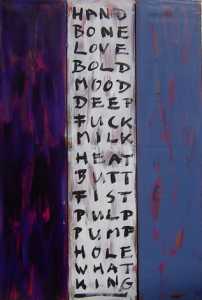 HAND
BONE
LOVE
BOLD
MOOD
DEEP
FUCK
MILK
HEAT
BUTT
FIST
PULP
PUMP
HOLE
WHAT
KING